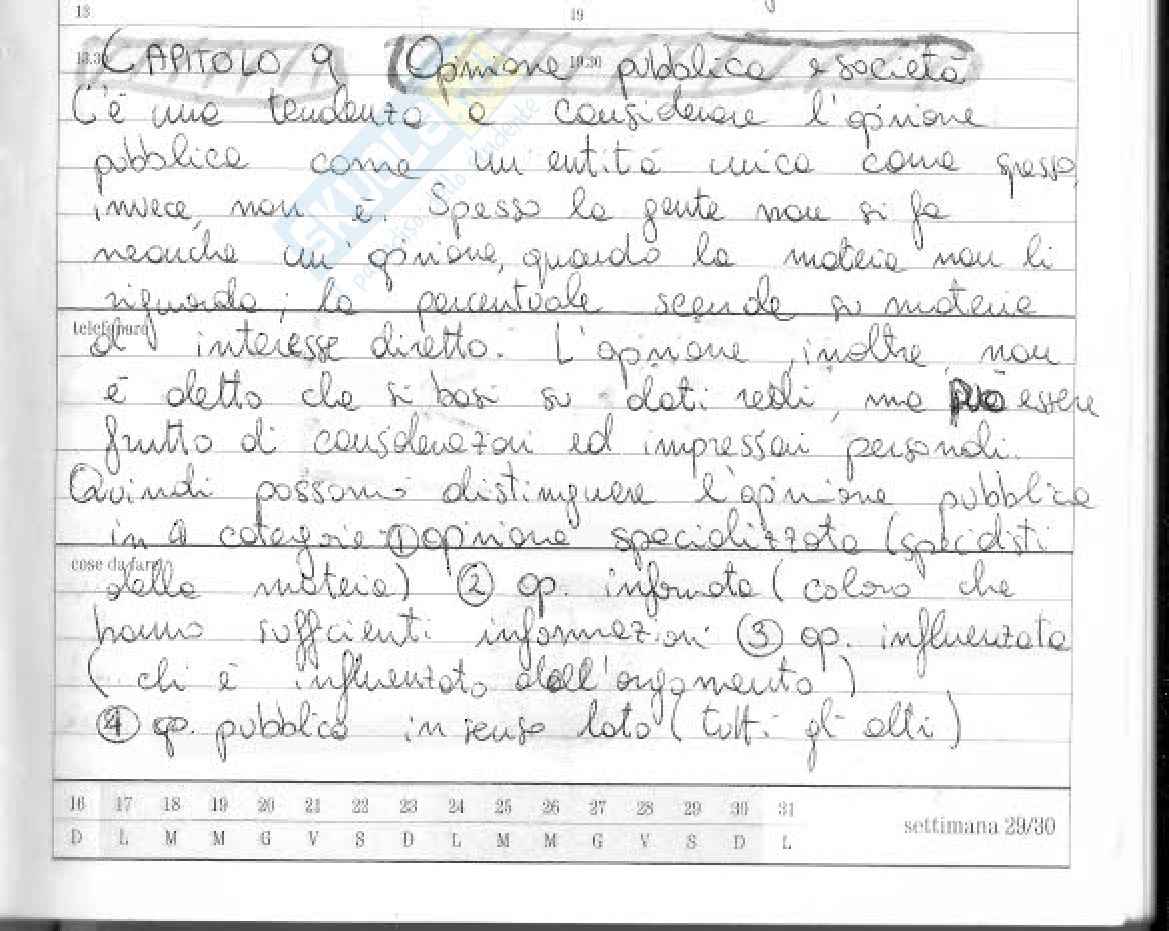 13 19
13.30 CAPITOLO 9 19.30 Opinione pubblica e società
C'è una tendenza a considerare l'opinione
pubblica come un'entità unica come spesso,
invece, non è. Spesso la gente non si fa
neanche un'opinione, quando la materia non li
riguarda; la percentuale scende su materie
telefonare
di interesse diretto. L'opinione, inoltre, non
è detto che si basi su dati reali, ma può essere
frutto di considerazioni ed impressioni personali.
Quindi possiamo distinguere l'opinione pubblica
in 4 categorie: ① opinione specializzata (specialisti
cose da fare
della materia) ② op. informata (coloro che
hanno sufficienti informazioni ③ op. influenzata
(chi è influenzato dall'argomento)
④ op. pubblica in senso lato (tutti gli altri)
16 17 18 19 20 21 22 23 24 25 26 27 28 29 30 31
D L M M G V S D L M M G V S D L
settimana 29/30